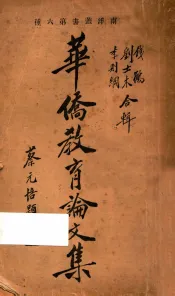 南洋叢書第六種
錢鶴
劉士木
李則綱
合輯
華僑教育論文集
蔡元培題